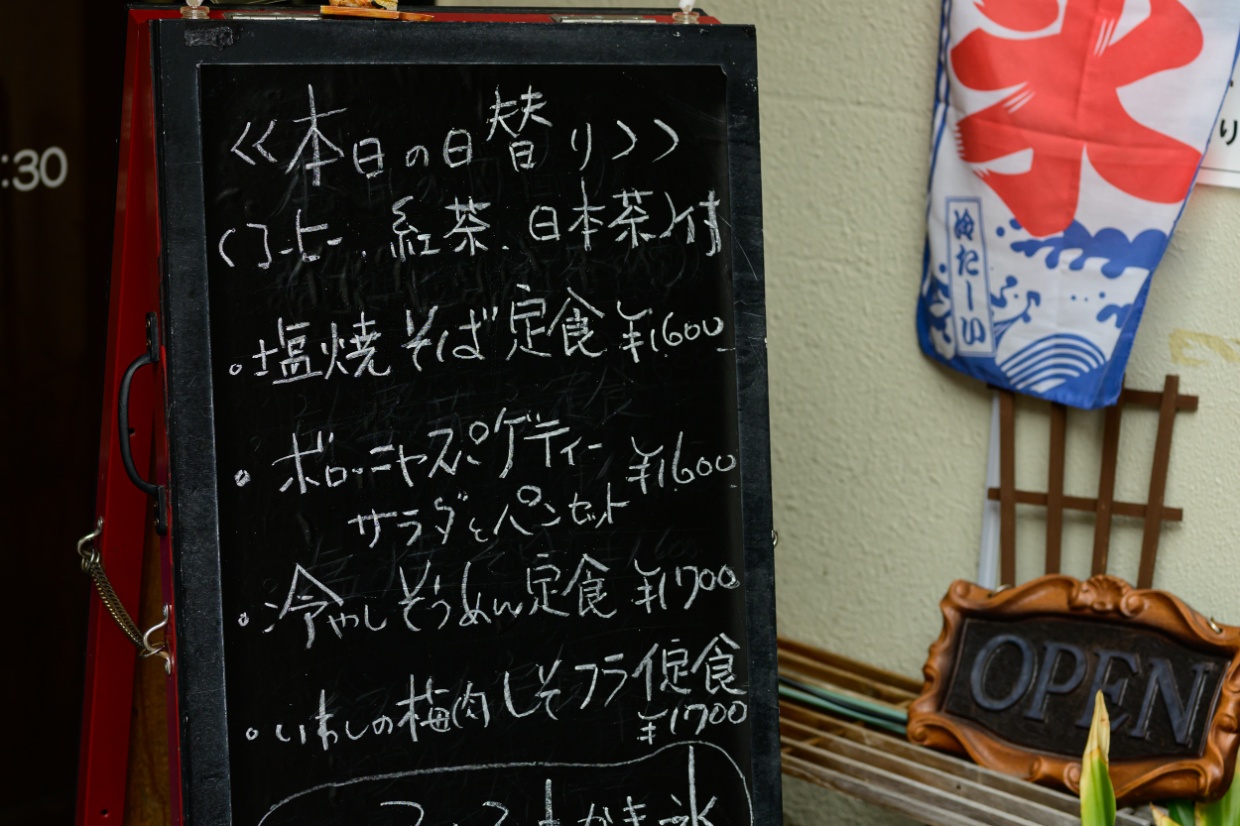 :30
<<本日の日替り>>
(コーヒー、紅茶、日本茶)付
・塩焼そば定食 ¥1600
・ボローニャスパゲティー ¥1600
サラダとパンセット
・冷やしそうめん定食 ¥1700
・いわしの梅肉しそフライ定食
¥1700
かき氷
氷
冷たーい
り
OPEN